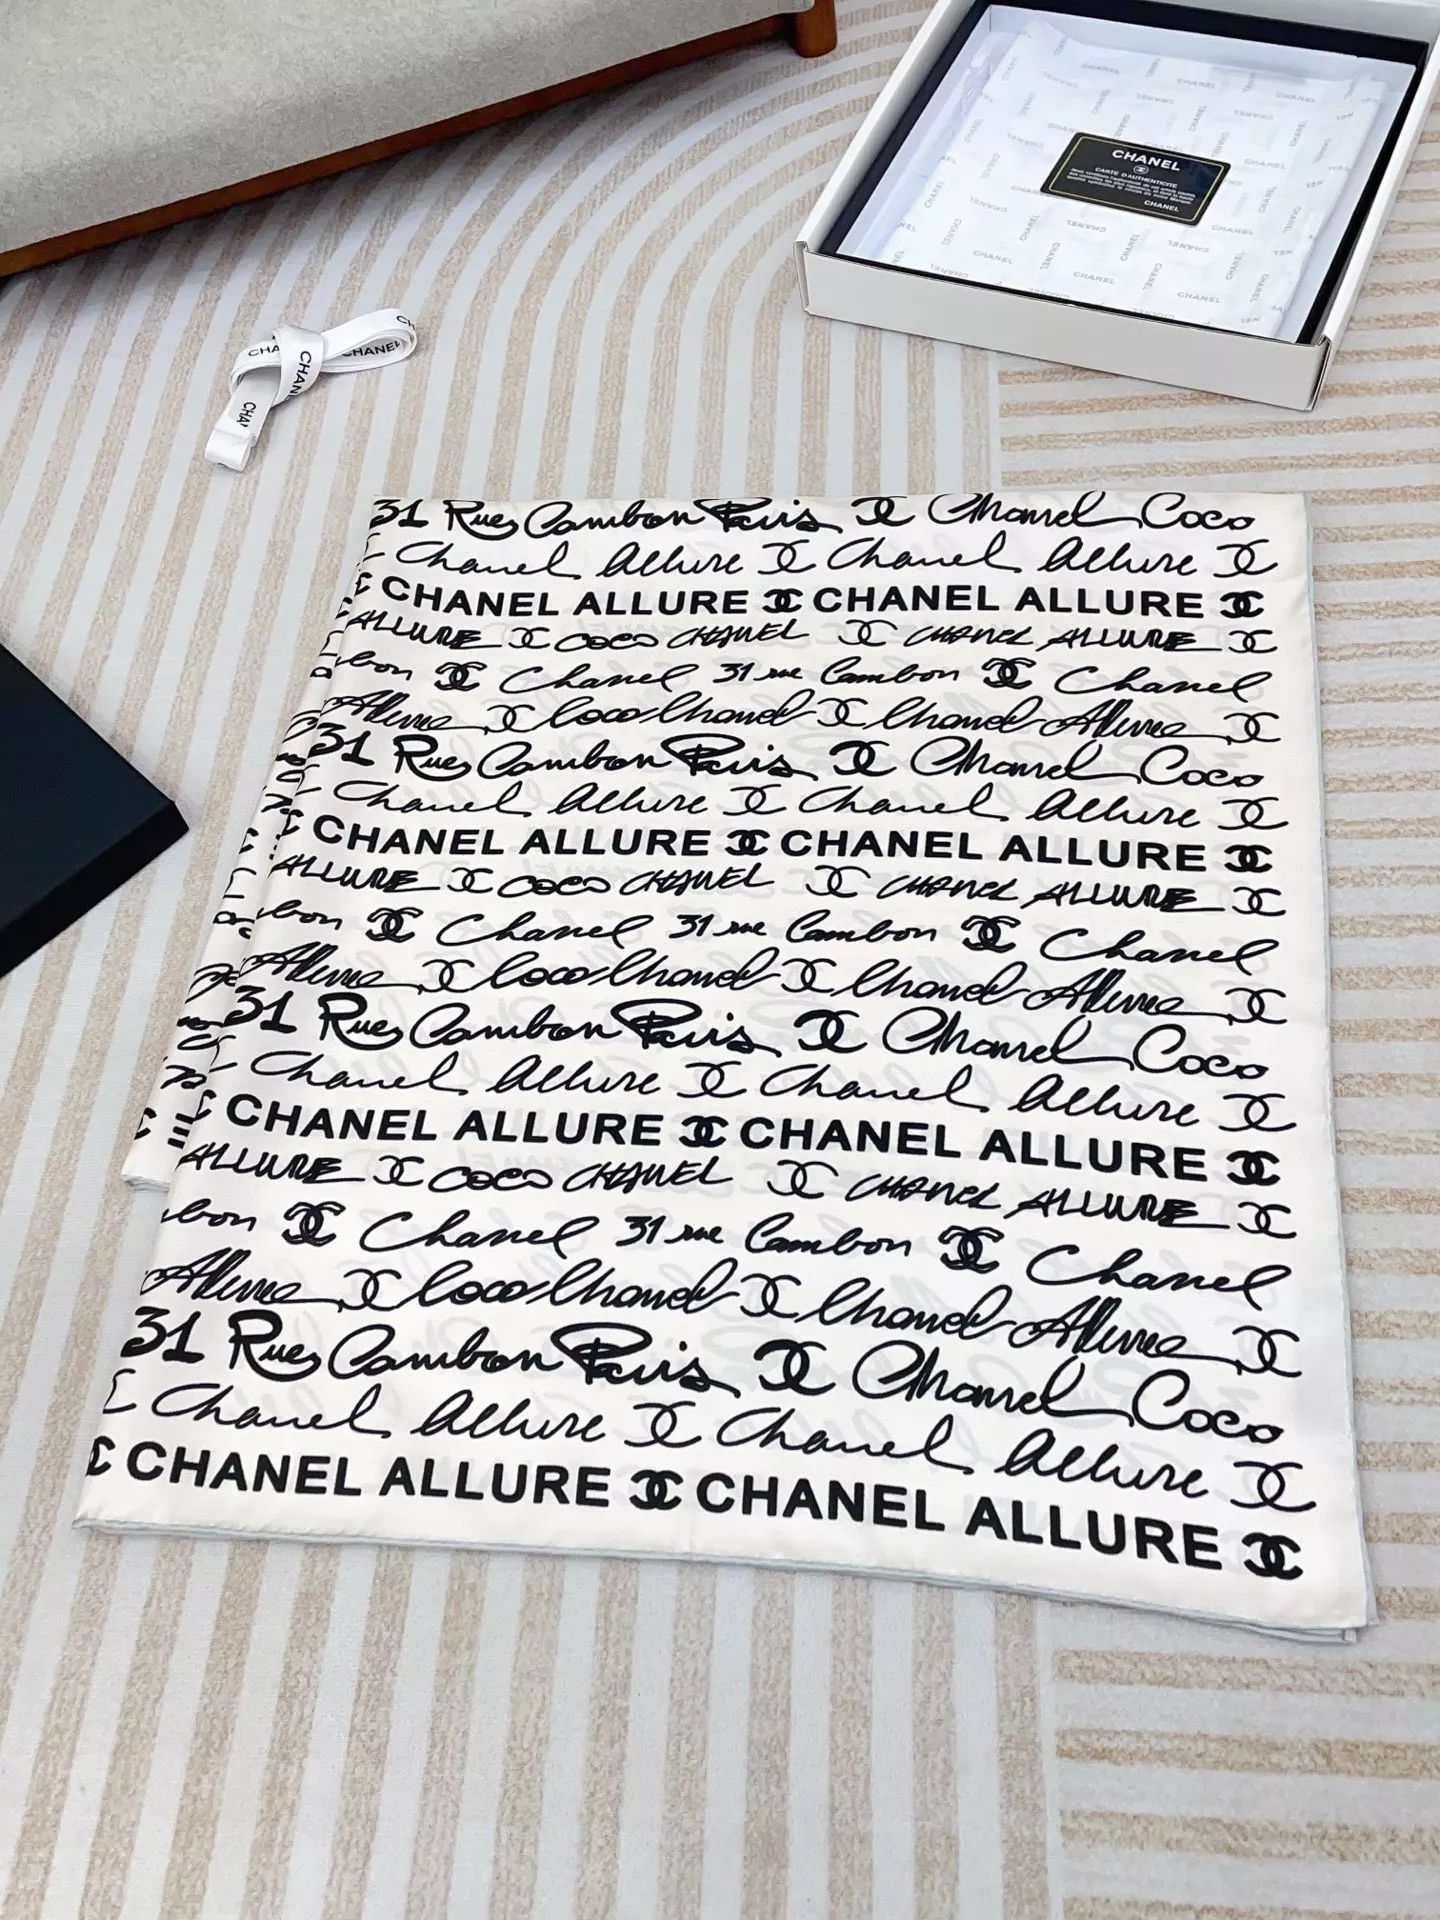 CHANEL
CARTE D'AUTHENTICITÉ
CHANEL
CHANEL
CHANEL
31 Rue Cambon Paris Chanel Coco
Chanel Allure Chanel Allure
CHANEL ALLURE CHANEL ALLURE
ALLURE COCO CHANEL CHANEL ALLURE
bon Chanel 31 rue Cambon Chanel
Allure Coco Chanel Chanel Allure
31 Rue Cambon Paris Chanel Coco
Chanel Allure Chanel Allure
CHANEL ALLURE CHANEL ALLURE
ALLURE COCO CHANEL CHANEL ALLURE
bon Chanel 31 rue Cambon Chanel
Allure Coco Chanel Chanel Allure
31 Rue Cambon Paris Chanel Coco
Chanel Allure Chanel Allure
CHANEL ALLURE CHANEL ALLURE
ALLURE COCO CHANEL CHANEL ALLURE
bon Chanel 31 rue Cambon Chanel
Allure Coco Chanel Chanel Allure
31 Rue Cambon Paris Chanel Coco
Chanel Allure Chanel Allure
CHANEL ALLURE CHANEL ALLURE